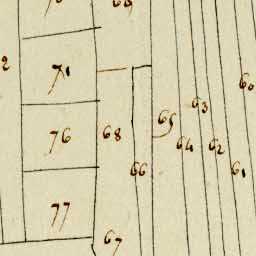 69
2
71
60
63
65
76
68
64
62
66
61
77
67